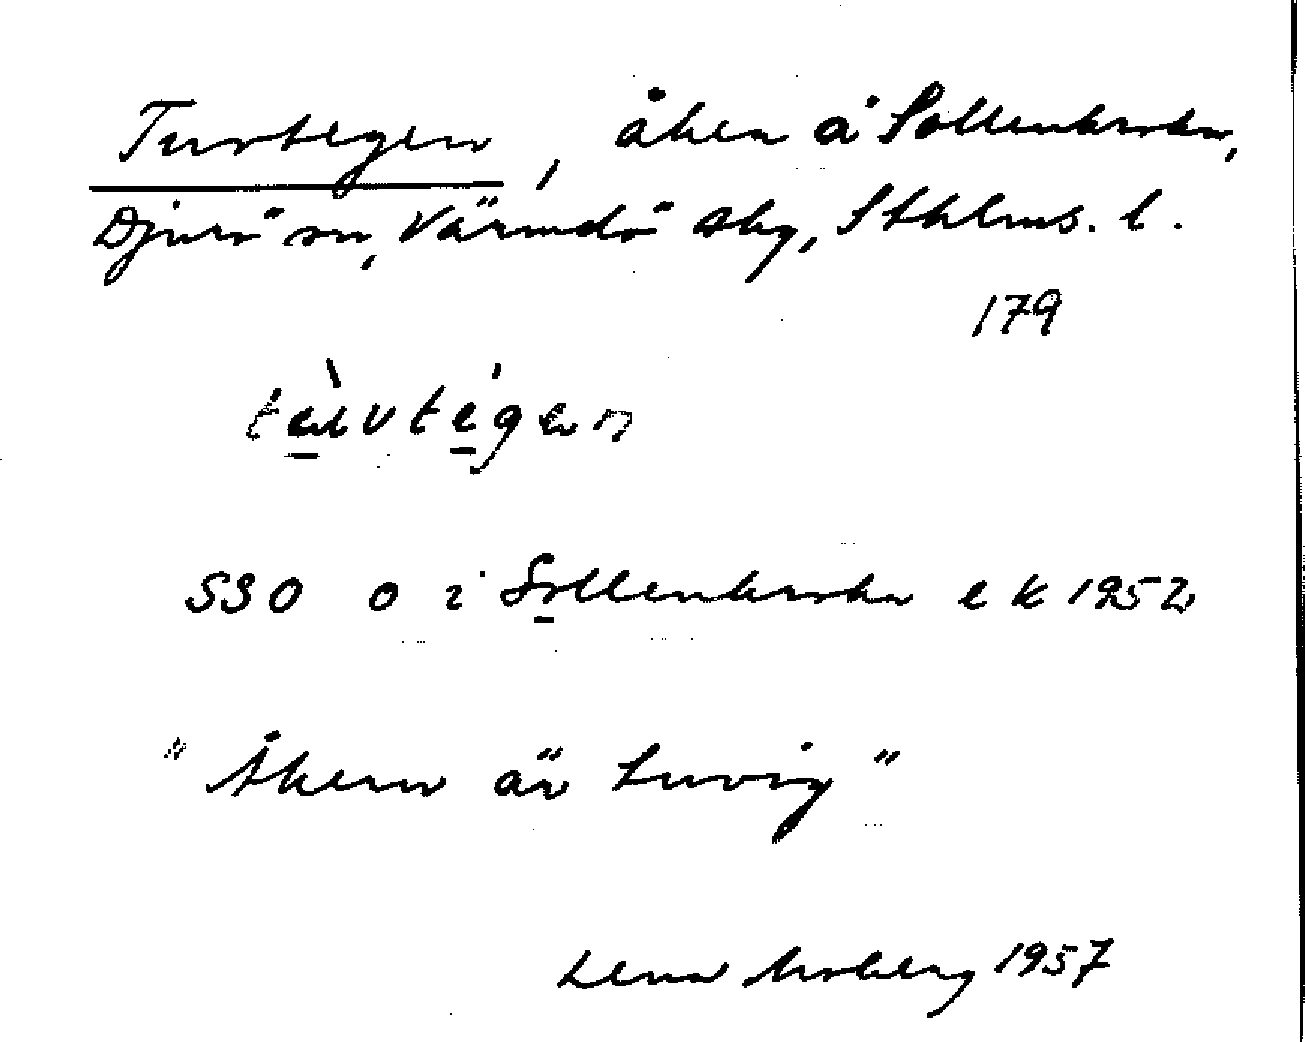 Tuvtegen, åker å Sollenkroka,
Djurö sn, Värmdö skg, Sthlms. l.
179
tɯ̀vtégən
SSO o i Sollenkroka ek 1952
"Åkern är tuvig"
Lena Moberg 1957